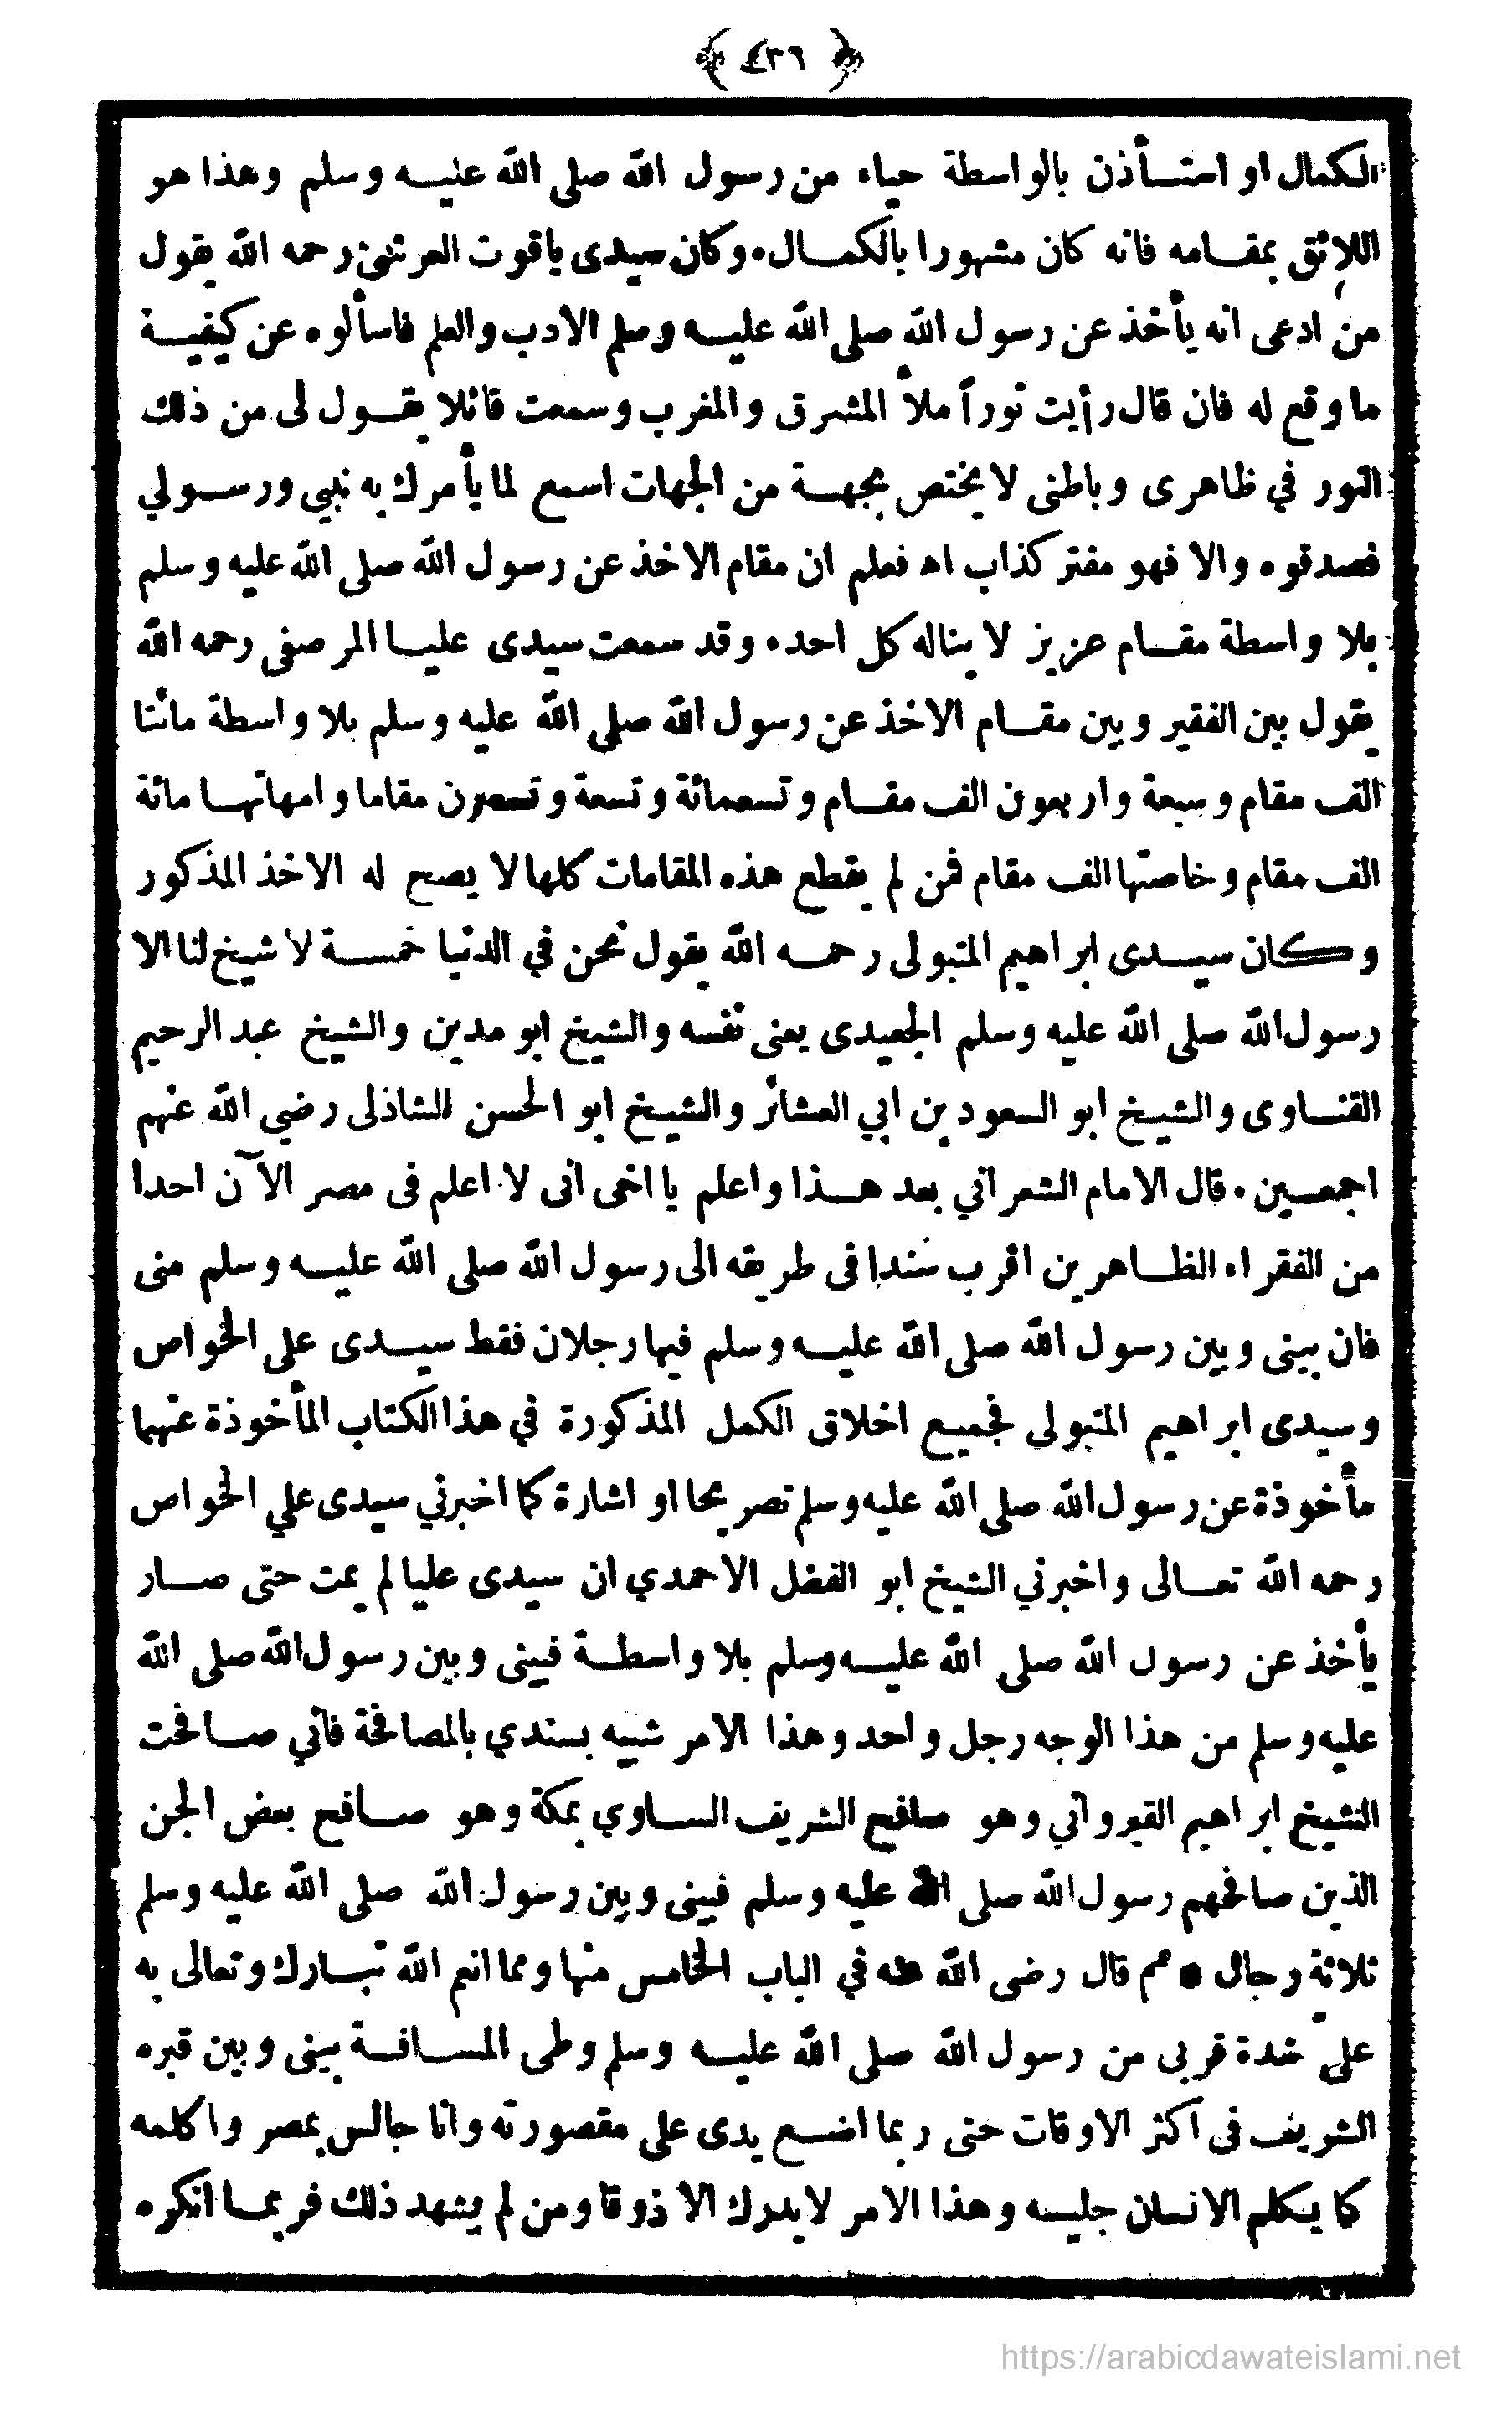 ﴿ ٤٣٦ ﴾
الكمال او استــأذن بالواسطة حياء من رسول الله صلى الله عليــه وسلم وهذا هو
اللائق بمقــامه فانه كان مشهورا بالكمــال ٠ وكان سيدى ياقوت العرشئ رحمه الله يقول
من ادعى انه يأخذ عن رسول الله صلى الله عليــه وسلم الادب والعلم فاسألوه عن كيفيــة
ما وقع له فان قال رأيت نوراً ملأ المشرق والمغرب وسمعت قائلا يقــول لى من ذلك
النور في ظاهرى وباطنى لا يختص بجهــة من الجهات اسمع لما يأمرك به نبيي ورســولي
فصدقوه والا فهو مفتر كذاب اه فعلم ان مقام الاخذ عن رسول الله صلى الله عليه وسلم
بلا واسطة مقــام عزيز لا يناله كل احد ٠ وقد سمعت سيدى عليــا المرصفى رحمه الله
يقول بين الفقير وبين مقــام الاخذ عن رسول الله صلى الله عليه وسلم بلا واسطة مائتا
الف مقام وسبعة واربعون الف مقــام وتسعمائة وتسعة وتسعون مقاما وامهاتهــا مائة
الف مقام وخاصتها الف مقام فمن لم يقطع هذه المقامات كلها لا يصح له الاخذ المذكور
وكان سيــدى ابراهيم المتبولى رحمــه الله يقول نحن في الدنيا خمســة لا شيخ لنا الا
رسول الله صلى الله عليه وسلم الجعيدى يعنى نفسه والشيخ ابو مدين والشيخ عبد الرحيم
القنــاوى والشيــخ ابو السعود بن ابي العشائر والشيــخ ابو الحسن الشاذلى رضي الله عنهم
اجمعــين ٠ قال الامام الشعراني بعد هــذا واعلم يا اخى انى لا اعلم فى مصر الآن احدا
من الفقراء الظــاهرين اقرب سندا فى طريقه الى رسول الله صلى الله عليــه وسلم منى
فان بينى وبين رسول الله صلى الله عليــه وسلم فيها رجلان فقط سيــدى على الخواص
وسيدى ابراهيم المتبولى فجميــع اخلاق الكمل المذكورة في هذا الكتاب المأخوذة عنهما
مأخوذة عن رسول الله صلى الله عليه وسلم تصريحا او اشارة كما اخبرني سيدى علي الخواص
رحمه الله تعــالى واخبرني الشيخ ابو الفضل الاحمدي ان سيدى عليا لم يمت حتى صــار
يأخذ عن رسول الله صلى الله عليــه وسلم بلا واسطــة فبينى وبين رسول الله صلى الله
عليه وسلم من هذا الوجه رجل واحد وهذا الامر شبيه بسندي بالمصافحة فاني صــافحت
الشيخ ابراهيم القيرواني وهو صافح الشريف الســاوي بمكة وهو صــافح بعض الجن
الذين صافحهم رسول الله صلى الله عليه وسلم فبينى وبين رسول الله صلى الله عليه وسلم
ثلاثة رجال ٠ ثم قال رضى الله عنه في الباب الخامس منها ومما انعم الله تبــارك وتعالى به
على شدة قربى من رسول الله صلى الله عليــه وسلم وطى المســافــة بينى وبين قبره
الشريف فى اكثر الاوقات حتى ربما اضــع يدى على مقصورته وانا جالس بمصر واكلمه
كما يكلم الانسان جليسه وهذا الامر لا يدرك الا ذوقا ومن لم يشهد ذلك فربمــا انكره
https://arabicdawateislami.net